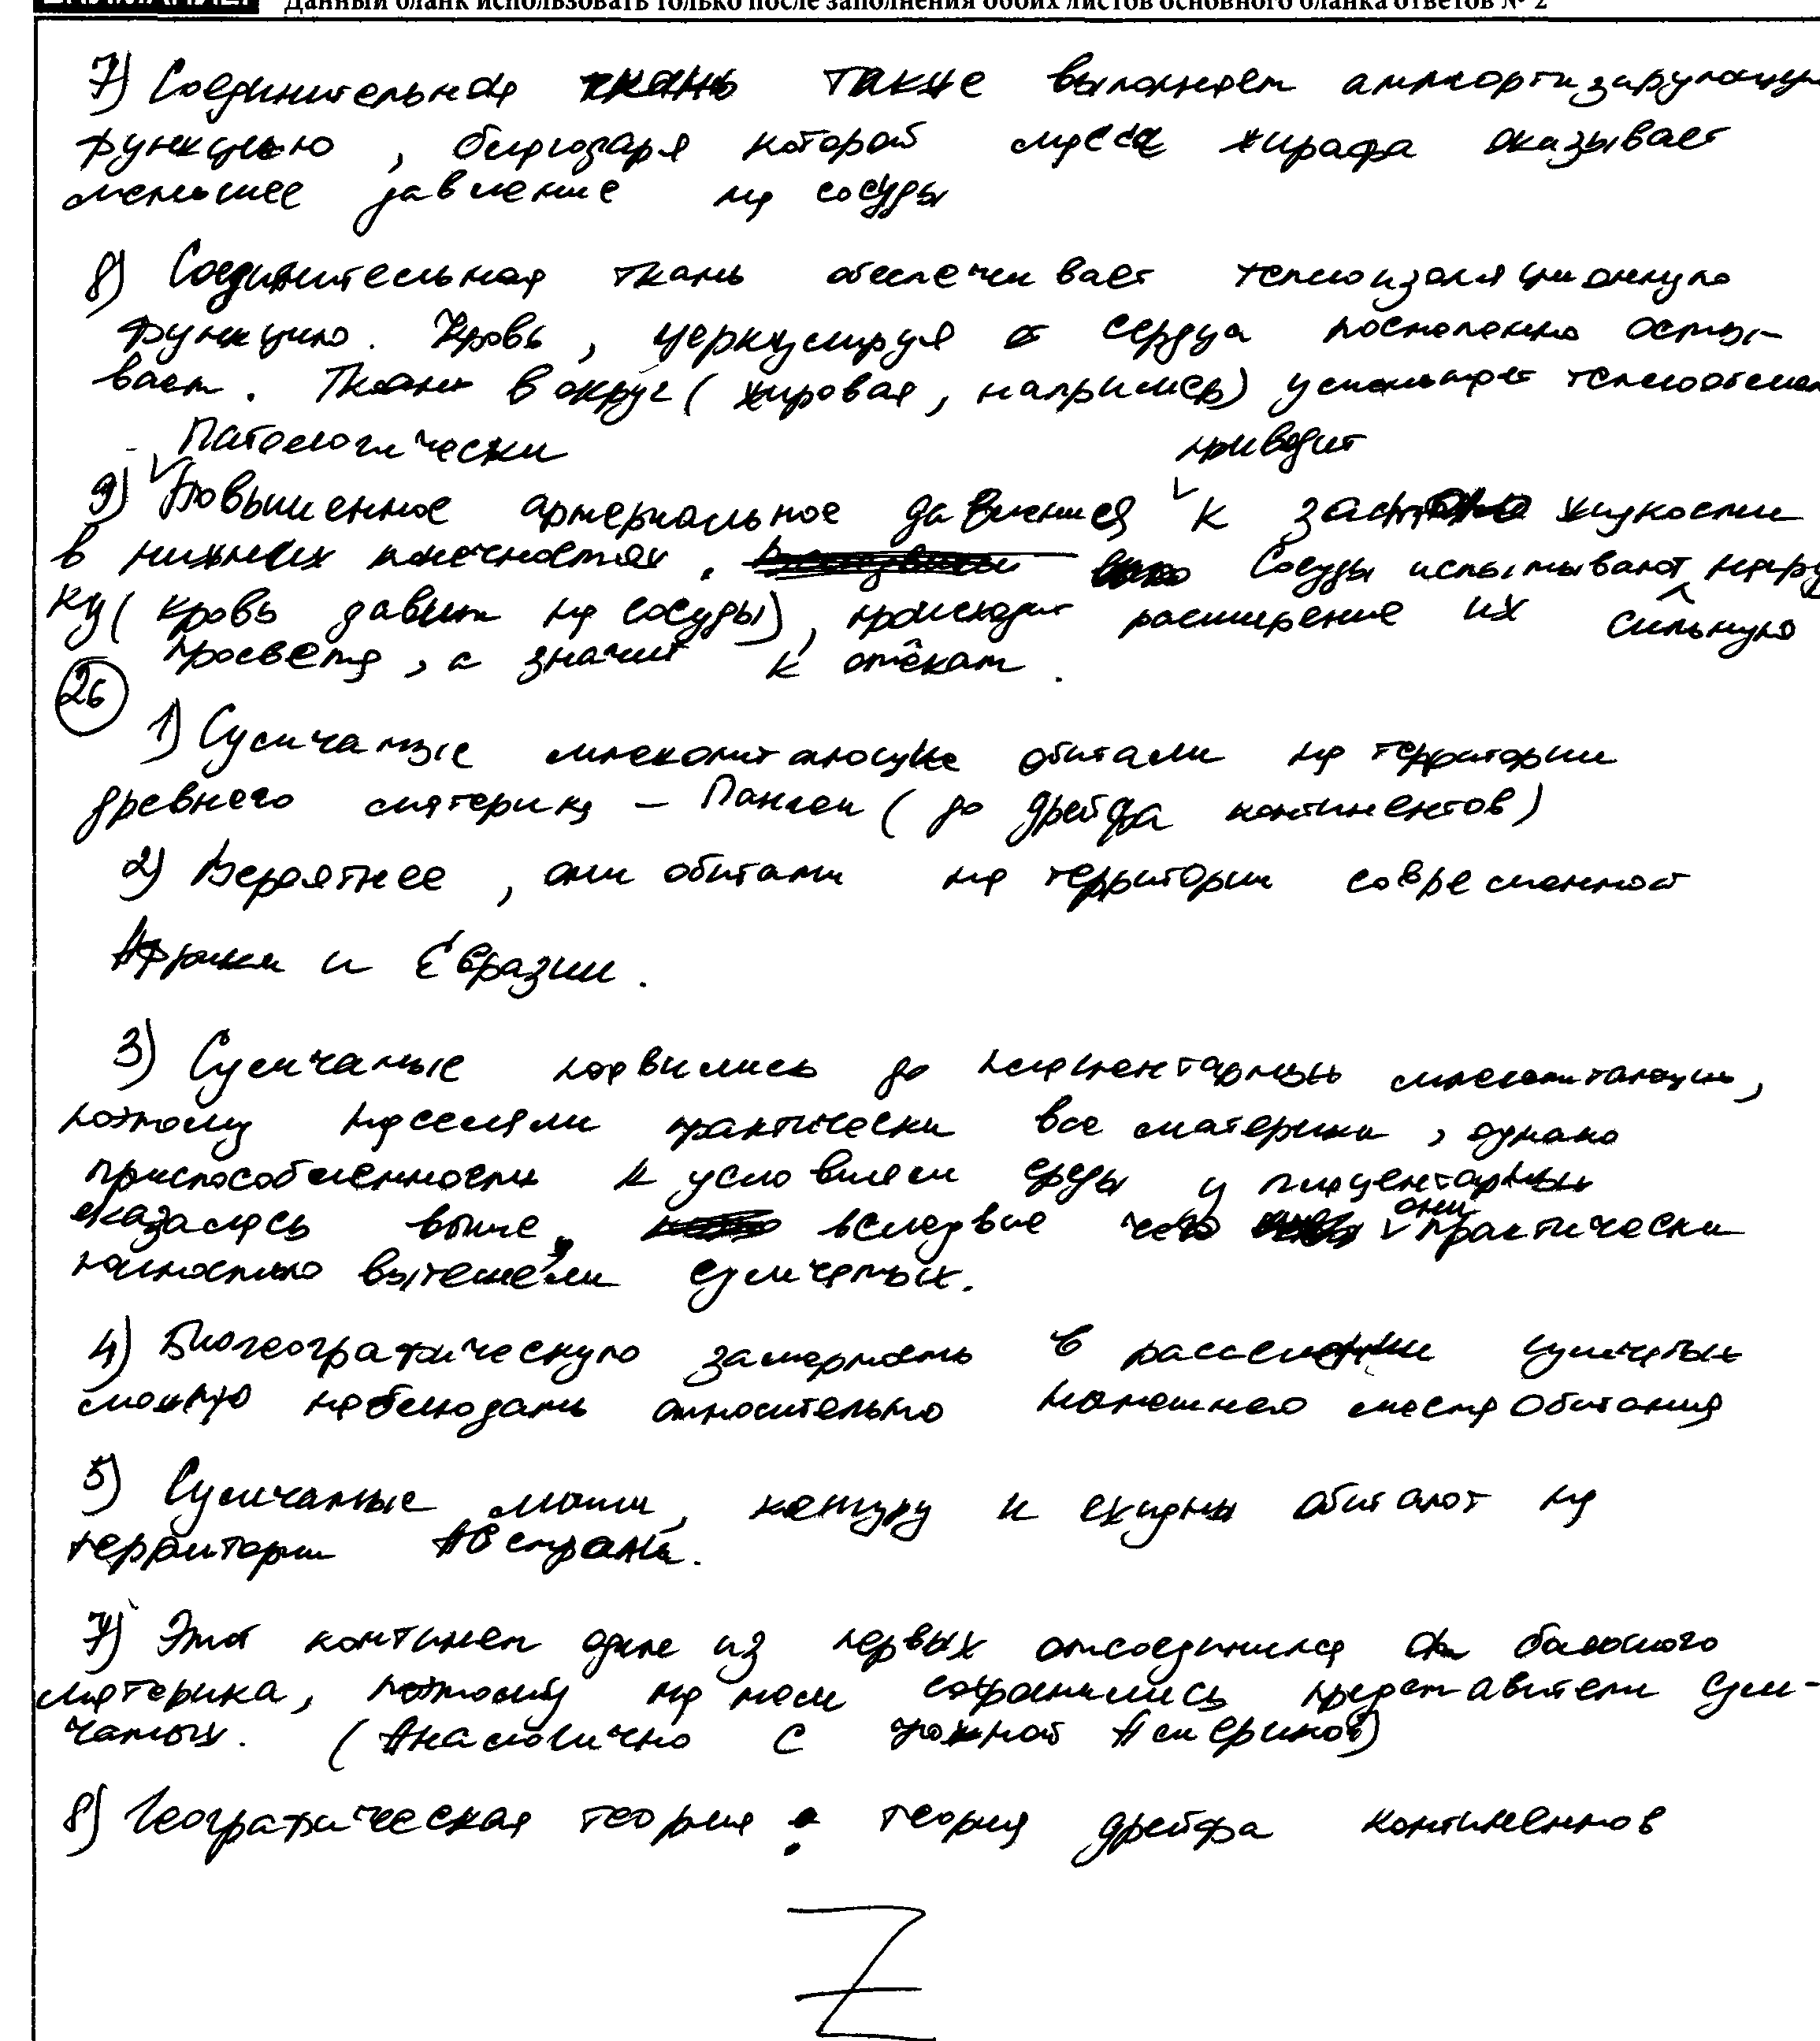 Данный бланк использовать только после заполнения обоих листов основного бланка ответов № 2
7) Соединительная ткань также выполняет аммортизирующую
функцию, благодаря которой масса жирафа оказывает
меньшее давление на сосуды
8) Соединительная ткань обеспечивает теплоизоляционную
функцию. Кровь, церкулируя от сердца постепенно осты-
вает. Ткани вокруг (жировая, например) уменьшает теплообмен
Патологически приводит
9) Повышенное артериальное давление к застою жидкости
в нижних конечностях. Сосуды испытывают нагруз
ку (кровь давит на сосуды), происходит расширение их сильную
просвета, а значит к отёкам.
26
1) Сумчатые млекопитающие обитали на территории
древнего материка – Пангеи (до дрейфа континентов)
2) Вероятнее, они обитали на территории современной
Африки и Евразии.
3) Сумчатые появились до плацентарных млекопитающих,
поэтому населяли практически все материки, однако
приспособленности к условиям среды у плацентарных
оказалась выше, вследвие чего они практически
полностью вытеснили сумчатых.
4) Биогеографическую замкнутость в расселении сумчатых
можно наблюдать относительно нынешнего места обитания
5) Сумчатые мыши, кенгуру и ехидны обитают на
территории Австралии.
7) Этот континент один из первых отсоединился от большого
материка, поэтому на нем сохранились представители сум-
чатых. (Аналогично с южной Америкой)
8) Географическая теория: теория дрейфа континентов
Z